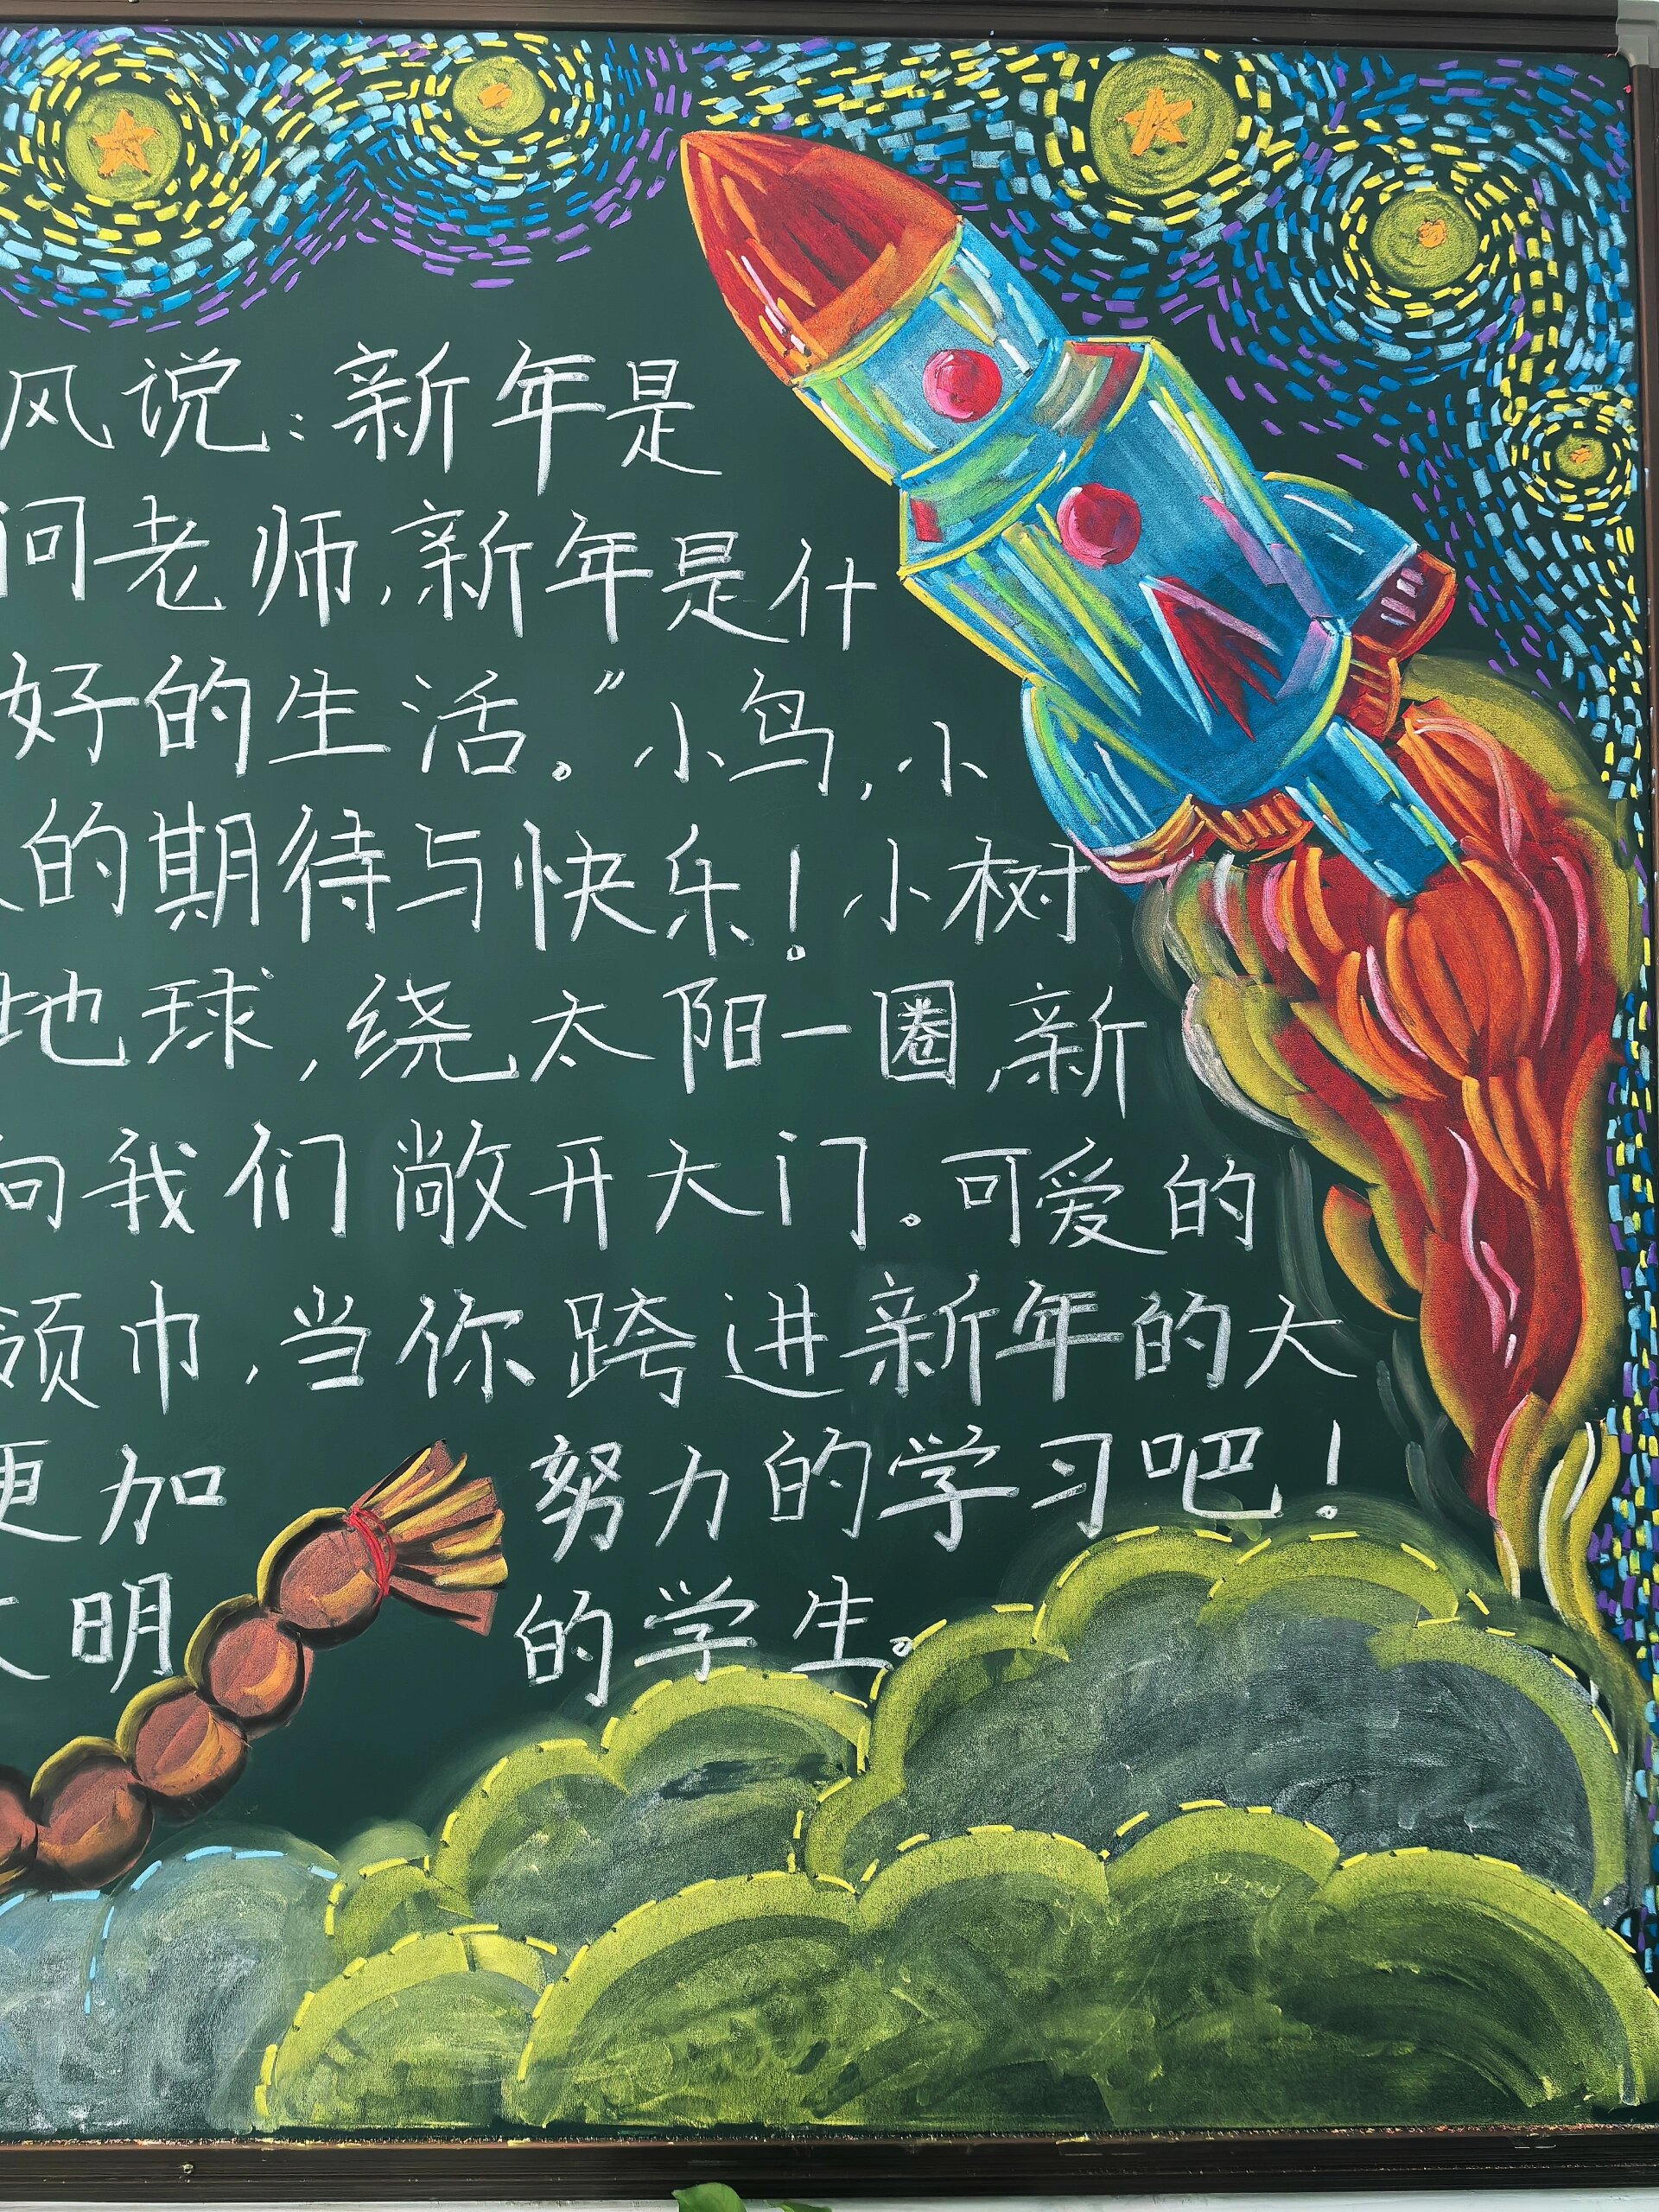 风说：新年是
问老师，新年是什
好的生活。”小鸟，小
的期待与快乐！小树
地球，绕太阳一圈，新
向我们敞开大门。可爱的
领巾，当你跨进新年的大
更加努力的学习吧！
明的学生。